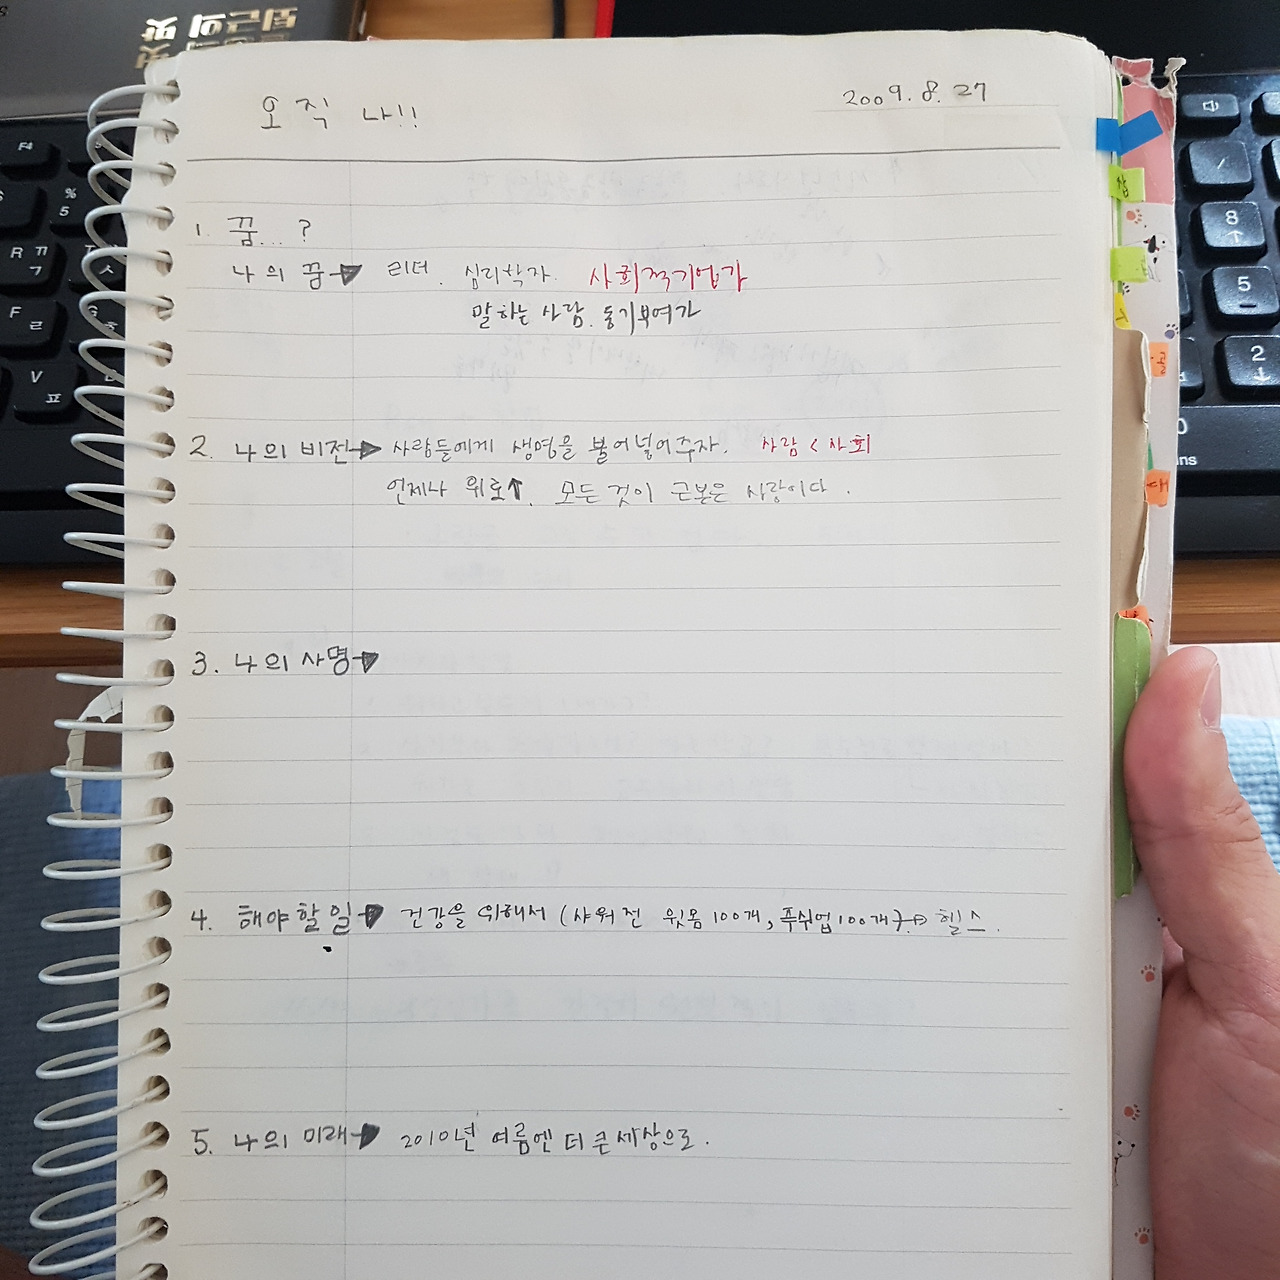 오직 나!!
2009. 8. 27
1. 꿈...?
나의 꿈→ 리더. 심리학자. 사회적기업가
말하는 사람. 동기부여가
2. 나의 비전→ 사람들에게 생명을 불어넣어주자. 사람 < 사회
언제나 위로↑. 모든 것이 근본은 사랑이다.
3. 나의 사명→
4. 해야할 일→ 건강을 위해서 (샤워 전 윗몸 100개, 푸쉬업 100개)→ 헬스.
5. 나의 미래→ 2010년 여름엔 더 큰 세상으로.
F4
%
5
R ㄲ
ㄱ
F
ㄹ
V
ㅍ
/
8
↑
5
2
↓
0